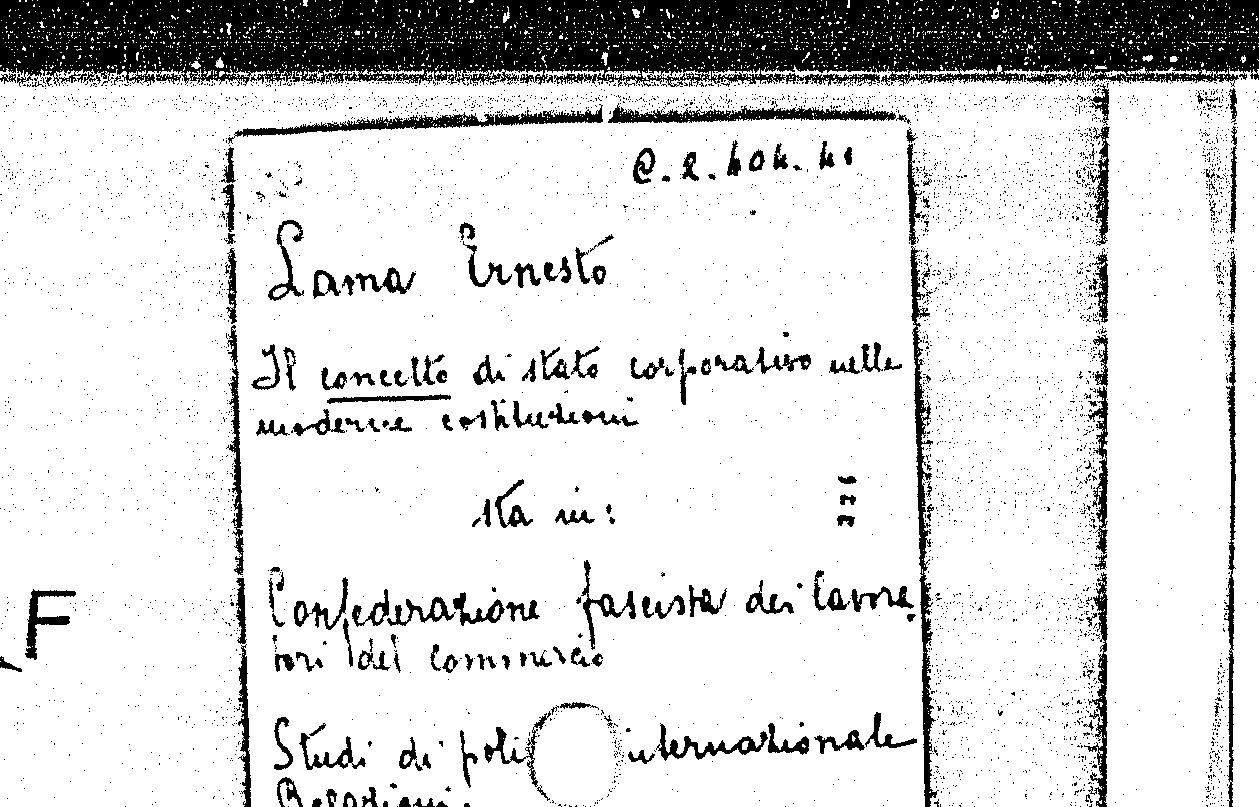 C.2.404.41
Lama Ernesto
Il concetto di stato corporativo nelle
moderne costituzioni
sta in:
376
Confederazione fascista dei lavora
tori del commercio
Studi di poli internazionale
Relazioni.
F